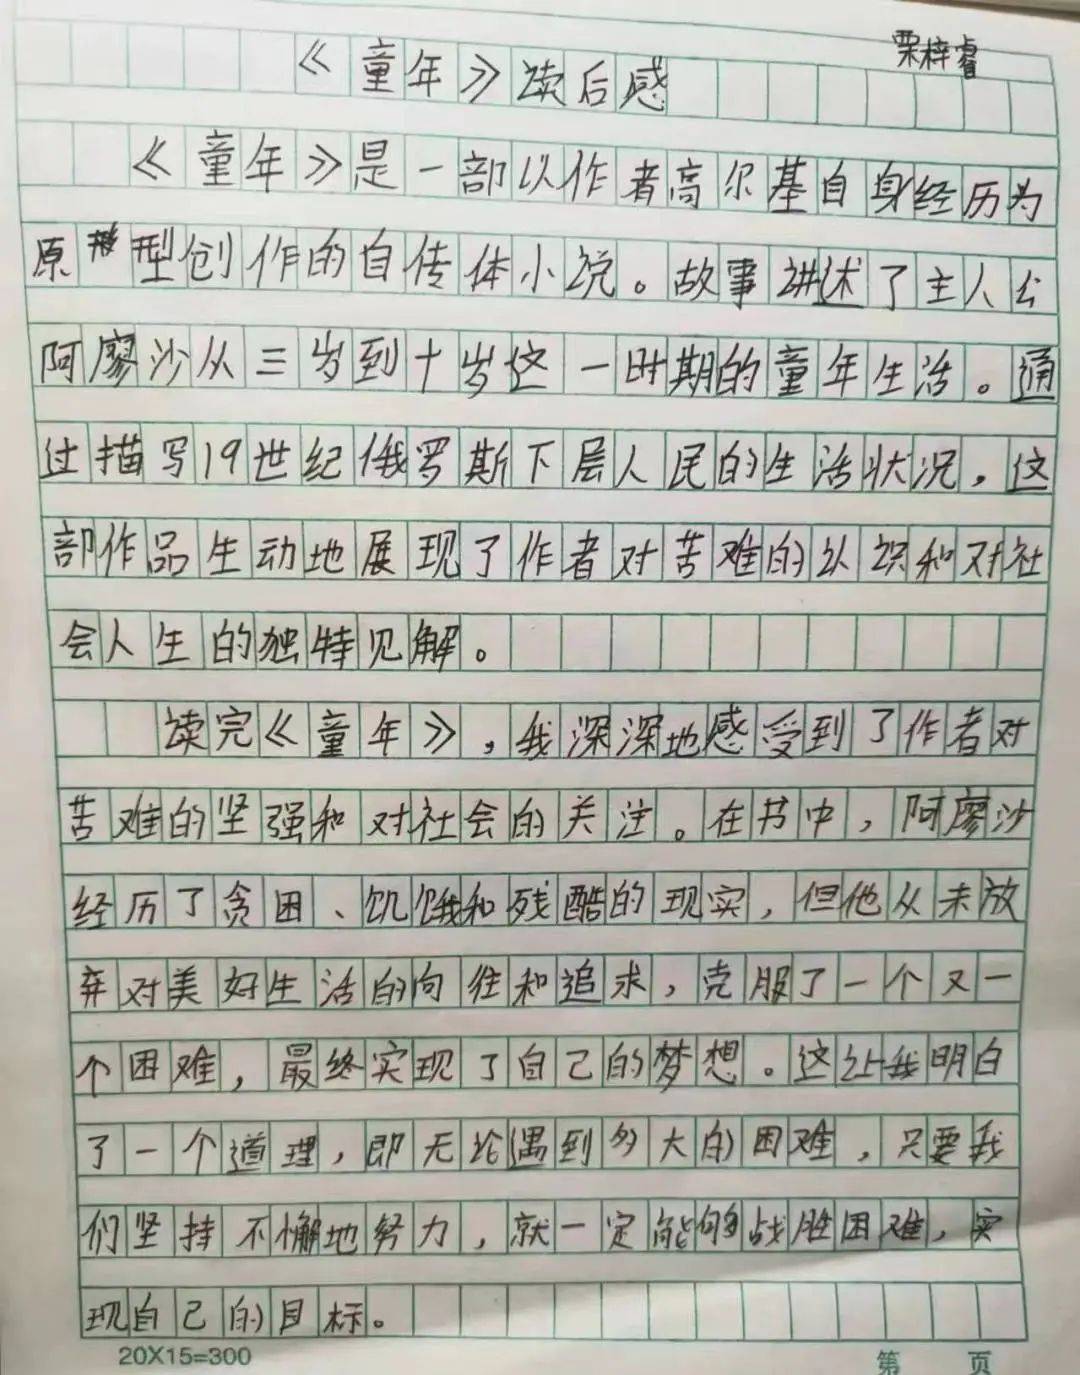 栗梓睿
《童年》读后感
《童年》是一部以作者高尔基自身经历为
原型创作的自传体小说。故事讲述了主人公
阿廖沙从三岁到十岁这一时期的童年生活。通
过描写19世纪俄罗斯下层人民的生活状况，这
部作品生动地展现了作者对苦难的认识和对社
会人生的独特见解。
读完《童年》，我深深地感受到了作者对
苦难的坚强和对社会的关注。在书中，阿廖沙
经历了贪困、饥饿和残酷的现实，但他从未放
弃对美好生活的向往和追求，克服了一个又一
个困难，最终实现了自己的梦想。这让我明白
了一个道理，即无论遇到多大的困难，只要我
们坚持不懈地努力，就一定能够战胜困难，实
现自己的目标。
20X15=300
第 页